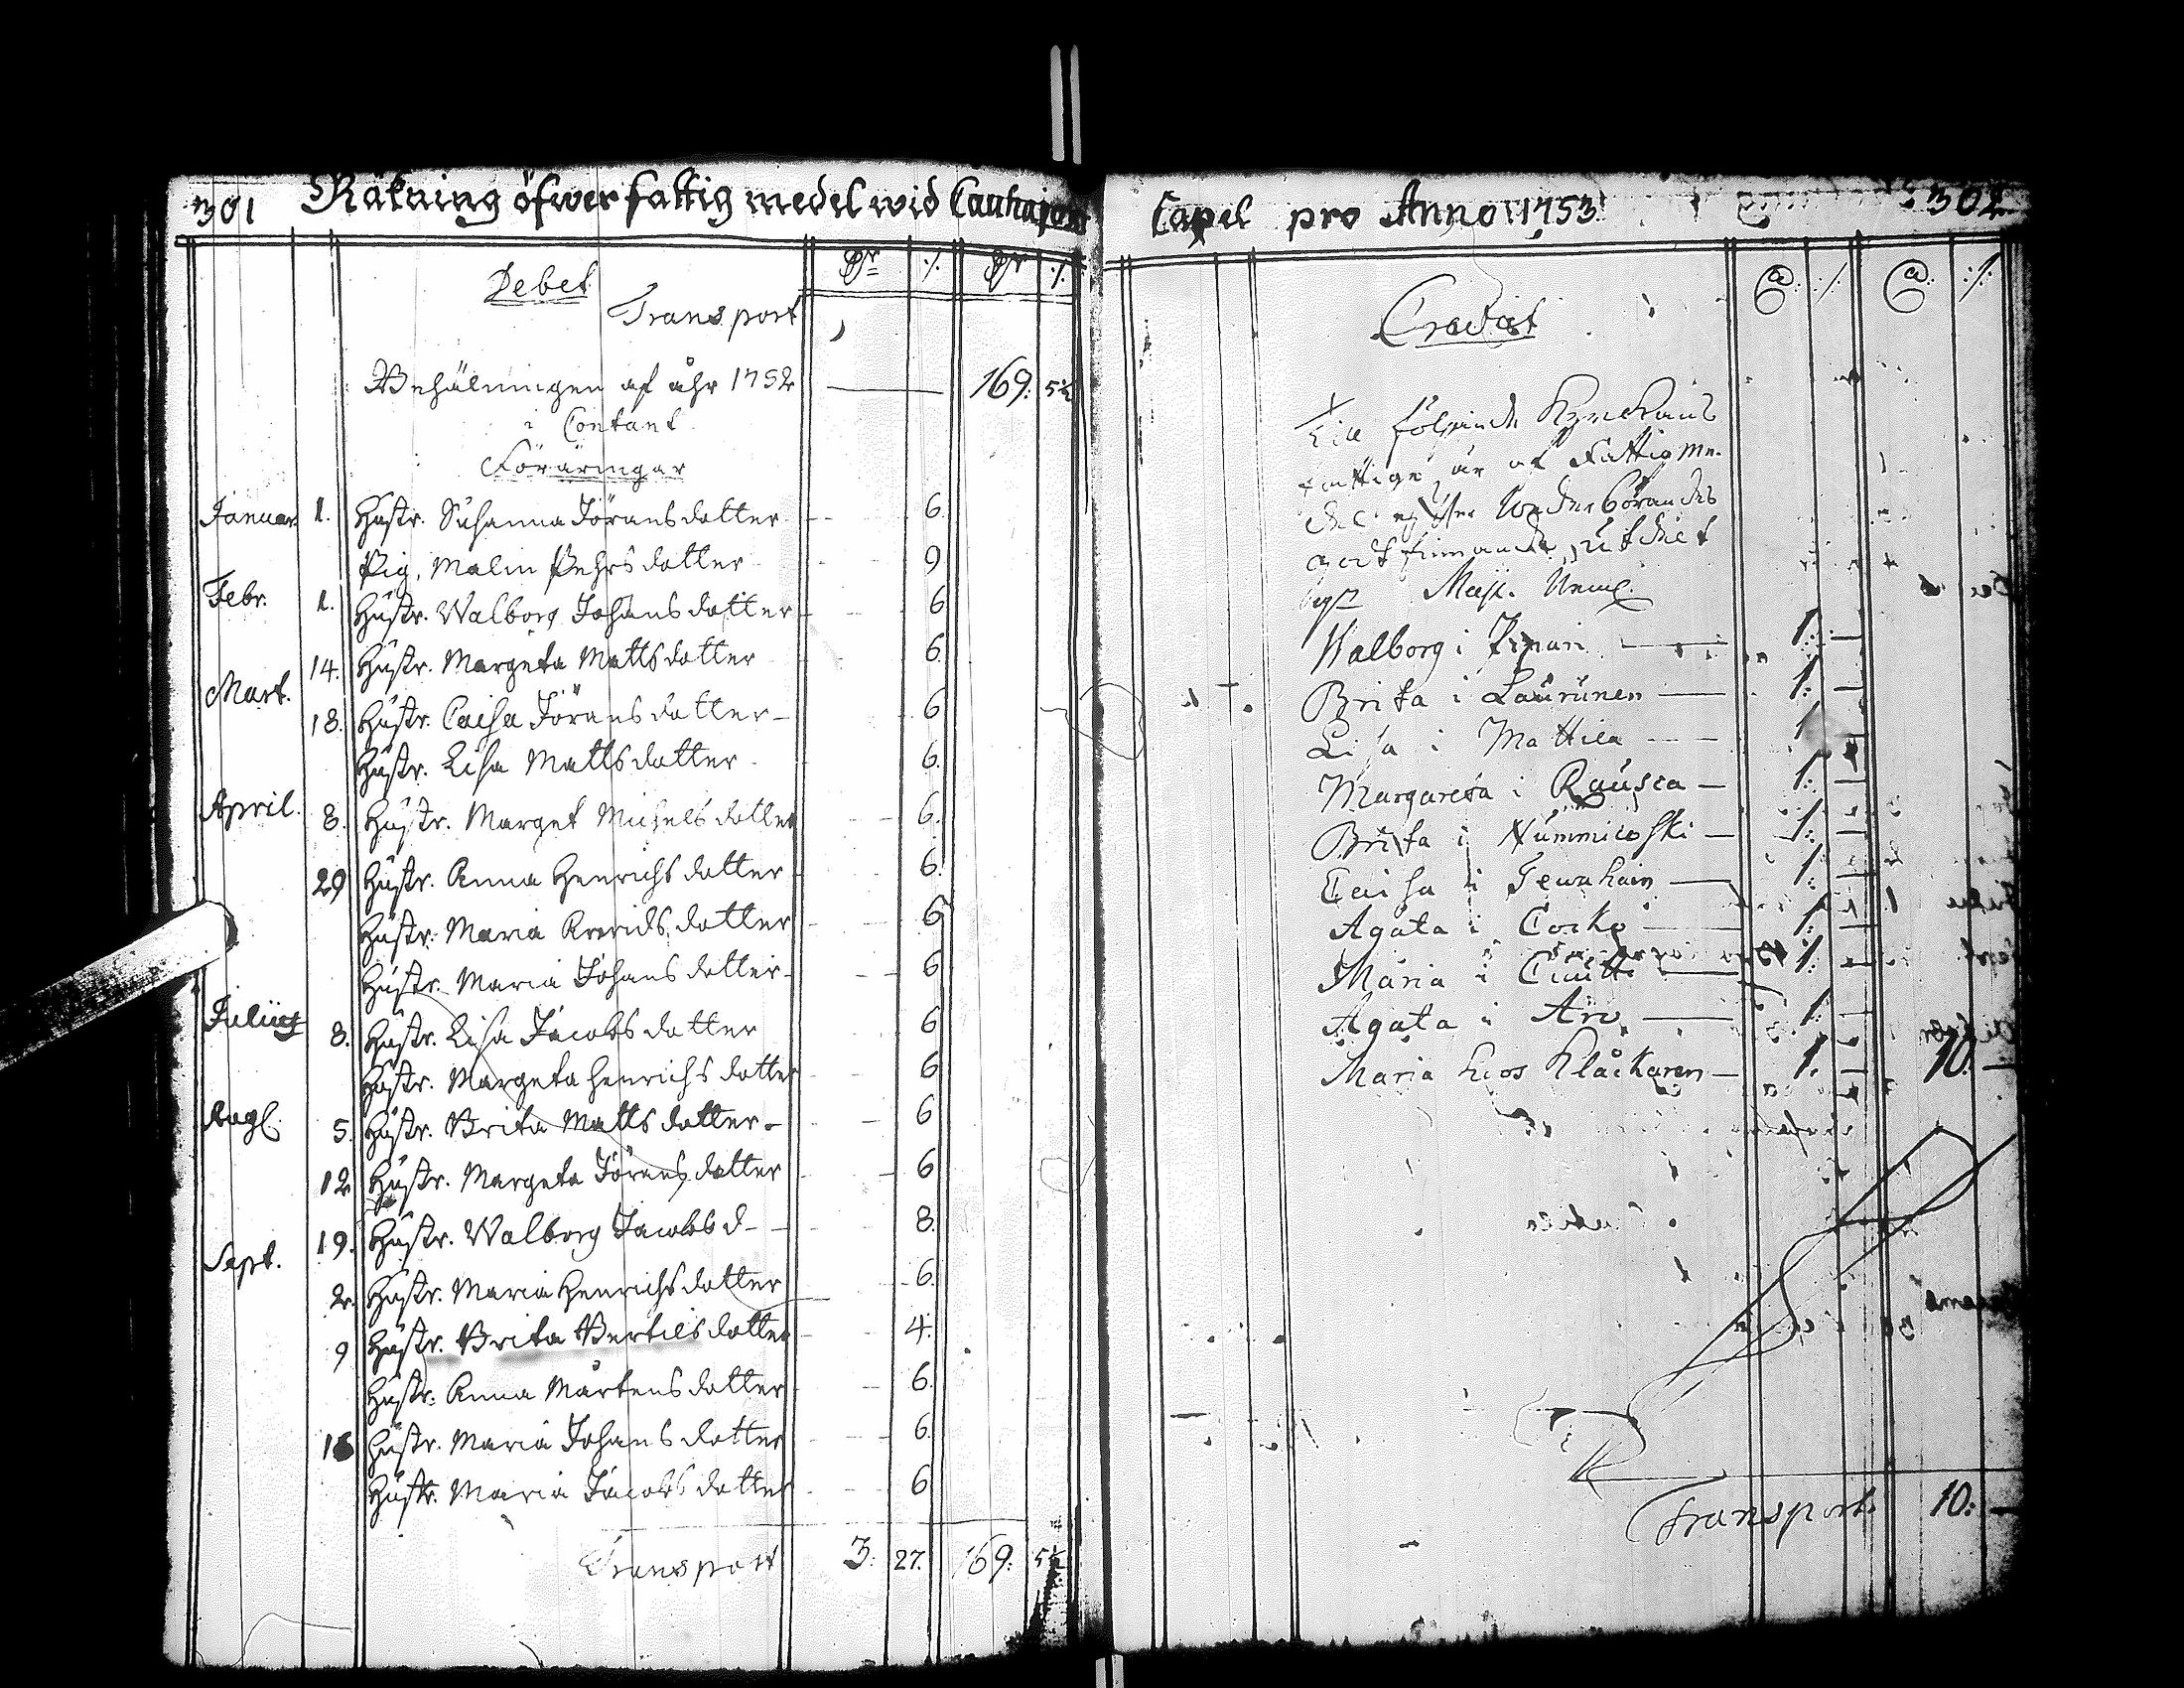 301 Räkning öfwer fattig medel wid Cauhajok
Debet
Dr ./. Dr ./.
Transport
Behålningen af åhr 1752 169: 5½
i Contant
Föräringar
Januar. 1. Hustr. Susanna Jöransdotter 6.
Pig. Malin Pehrsdotter 9
Febr. 1. Hustr. Walborg Johansdotter 6
14. Hustr. Margeta Mattsdotter 6.
Mart.
18. Hustr. Caisa Jöransdotter 6
Hustr. Lisa Mattsdotter 6.
April. 8. Hustr. Marget Michelsdotter 6.
29 Hustr. Anna Henrichsdotter 6.
Hustr. Maria dotter 6
Hustr. Maria Johansdotter 6
Julius 8. Hustr. Lisa Jacobsdotter 6
Hustr. Margeta Henrichsdotter 6
Aug. 5. Hustr. Brita Mattsdotter 6
12 Hustr. Margeta Jöransdotter 6
19. Hustr. Walborg Jacobs d 8.
Sept.
2. Hustr. Maria Henrichsdotter 6.
9 Hustr. Brita Bertilsdotter 4.
Hustr. Anna Mårtensdotter 6.
16 Hustr. Maria Johansdotter 6.
Hustr. Maria Jacobsdotter 6
Transport 3: 27. 169: 5½
Capel pro Anno 1753 302
Credit
./. ./.
Till följande Kyrckans
fattige är af Fattig me-
utdelt
Walborg i 1: —
Brita i Laurunen 1: —
Lisa i Mattila 1 —
Margareta i Rausca 1: —
Brita i Nummicoski 1: —
Caisa i 1: —
Agata i Coskö 1: —
Maria i 1: —
Agata i Aro 1: —
Maria hos Klåckaren 1: — 10: —
Transport 10: —